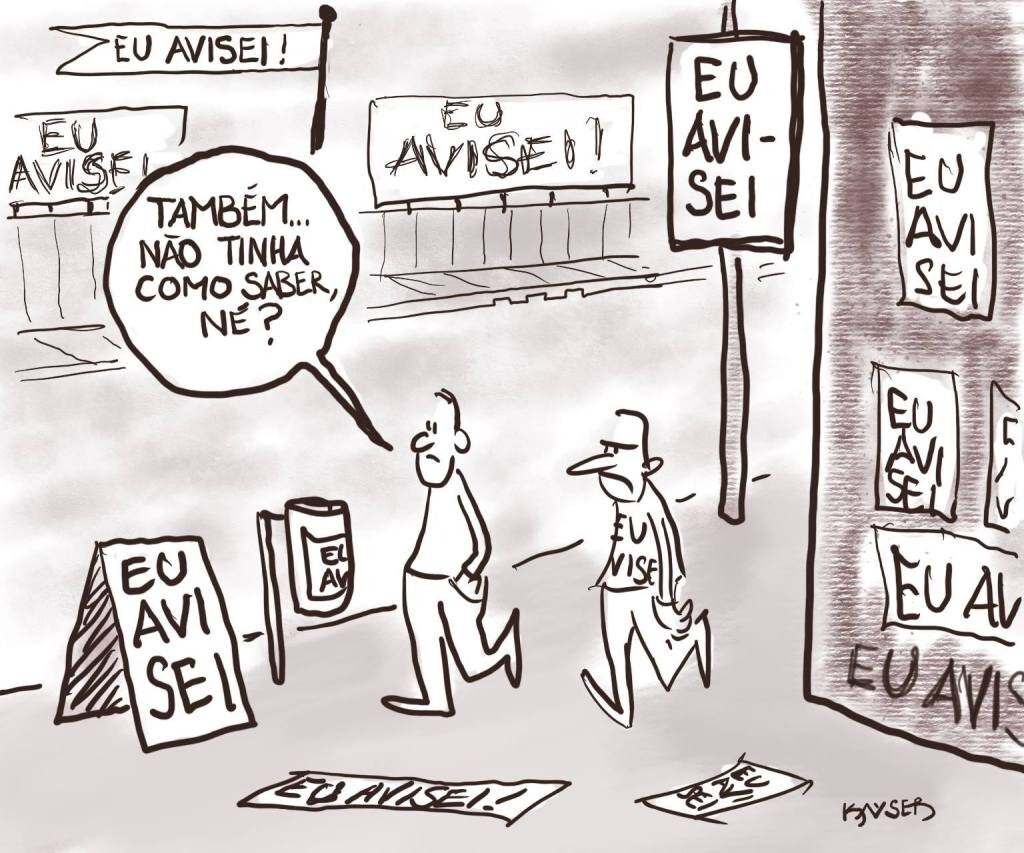 EU AVISEI!
EU
AVISEI
EU
AVISEI!
EU
AVI-
SEI
EU
AVI
SEI
TAMBÉM...
NÃO TINHA
COMO SABER,
NÉ?
EU
AVI
SEI
EU AV
EU AVIS
EU
AV
EU
VISE
EU
AVI
SEI
EU AVISEI!!
EU
AVI
SEI
KAYSER